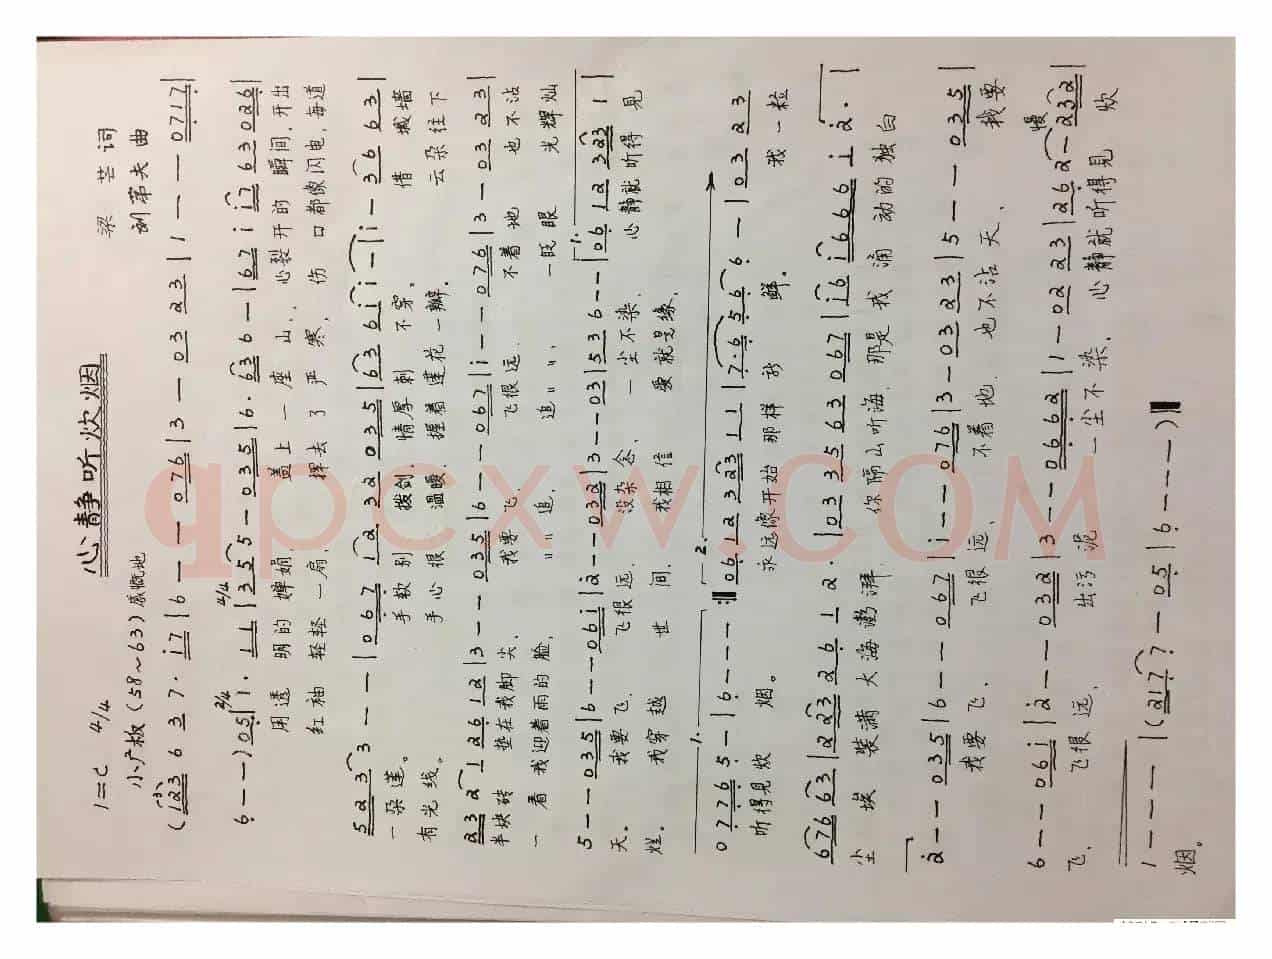 心静听炊烟
1=C 4/4
梁芒 词
小广板(58~63)感慨地
(123 6 3 7· i7 | 6 - - 076 | 3 - 03 23 | 1 - - - 0717 |
6 - - -) 05 | 1· 11 | 355 5 - 035 | 6· 636 - | 67 i i7 63 026 |
用透 明的 婵娟, 盖上一座山, 心裂开的 瞬间,开出
红袖 轻轻一扇, 挥去了严寒, 伤 口都像闪电,每道
523 3 - - - | 067 12 32 035 | 663 6i i - | i - 36 63 |
一朵莲。 手软别 拨剑, 情厚刺 不穿。 借 城墙
有光线。 手心很 温暖, 握着莲花一瓣。 云朵往下
232 1 2612 | 3 - - 035 | 6 - - 067 | i - - 076 | 3 - 03 23 |
半块砖 垫在我脚尖, 我要 飞, 飞很远, 不着 地 也不沾
一看 我迎着雨的脸, 〃〃 追, 追〃〃, 一既 眼 光辉灿
5 - - 035 | 6 - - 06i | 2 - - 032 | 3 - - 03 | 536 - - | 06 12 323 1 |
天。 我要 飞, 飞很 远, 没杂 念, 一尘不染, 心静就听得 见
烂。 我穿 越 世 间, 我相 信 爱就是缘,
1. 2.
0 7765 - | 6 - - - - :| 06 12 323 11 | 7·6 56 6 - | 03 23
听得见炊 烟。 永远像开始 那样 新 鲜。 我一粒
676 63 | 2 23 26 12· | 03 35 63 067 | i6 i666 i 2· |
尘 埃 装满大海澎湃, 你隔山听海, 那是我 涌 动的独白
2 - - 035 | 6 - - 067 | i - - 076 | 3 - 03 23 | 5 - - 035 |
我要 飞, 飞很 远, 不着 地, 也不沾 天, 我要
慢
6 - - 06i | 2 - - 032 | 3 - - 0662 | 1 - 02 23 | 262 2 - 232 |
飞, 飞很 远, 出污 泥 一尘不 染, 心 静就听得见 炊
1 - - - - | (217 7 - 05 | 6 - - - -) ‖
烟。
qpcxw.COM